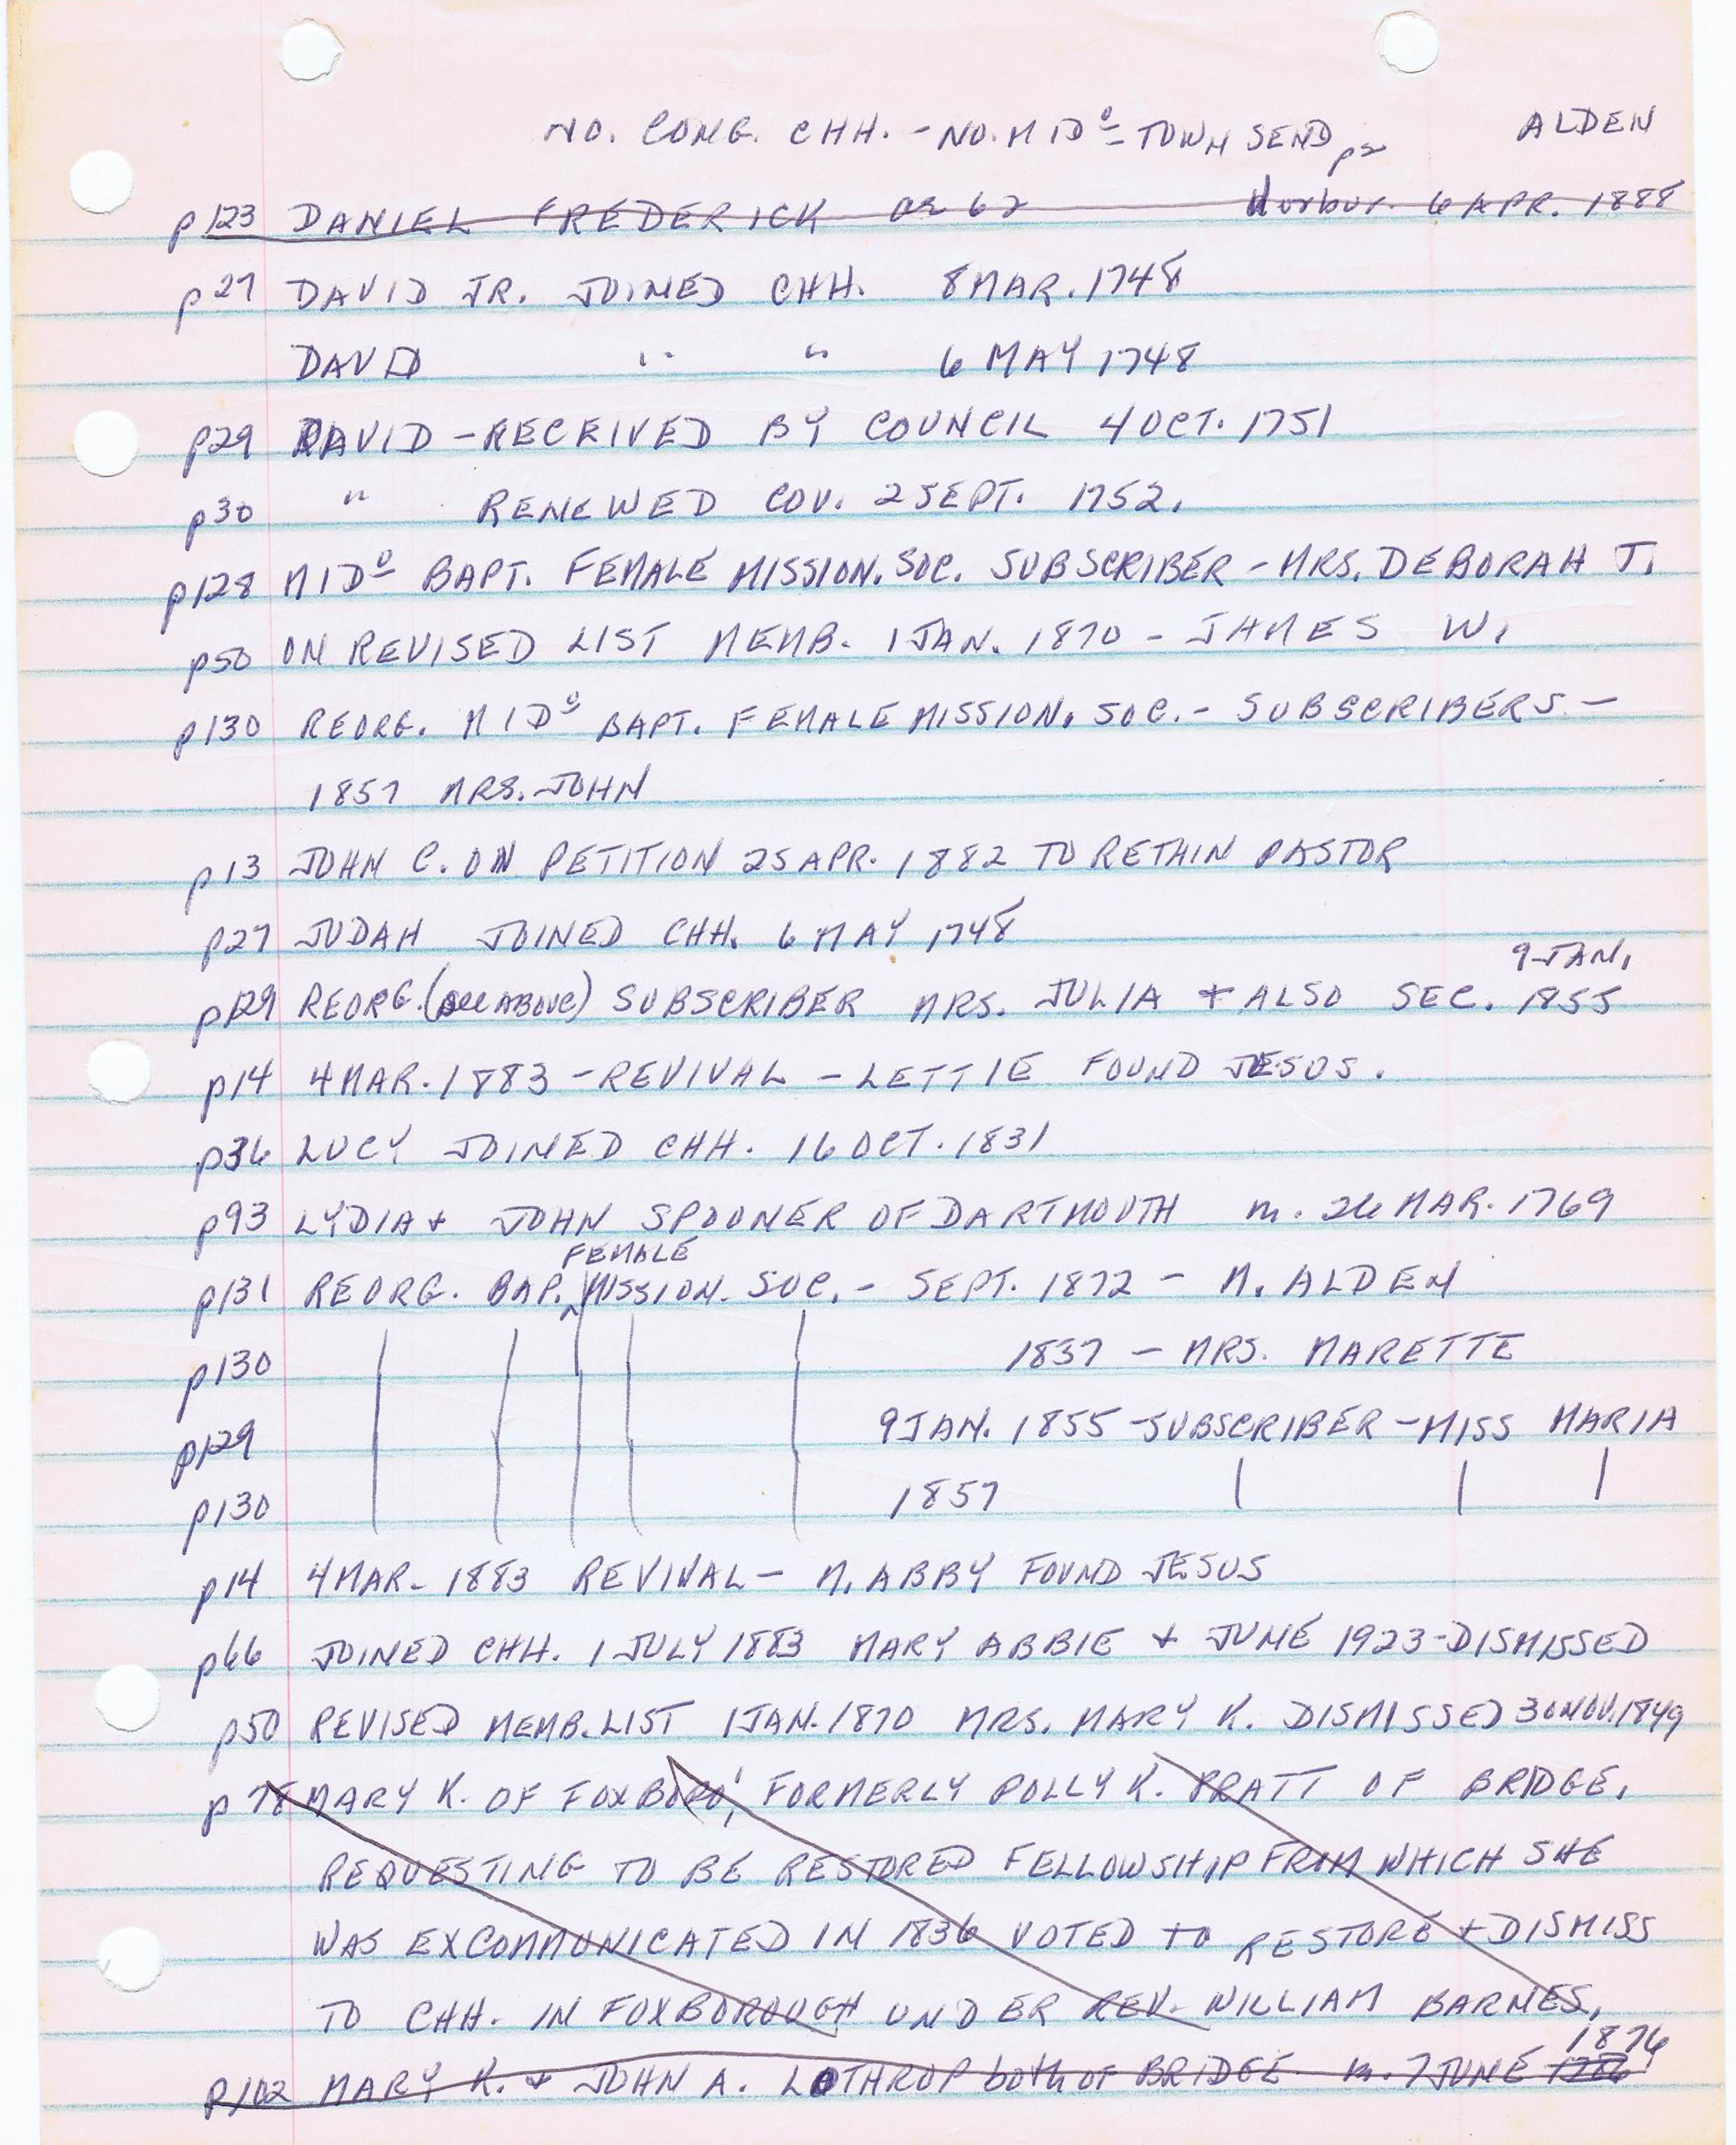 NO. CONG. CHH. - NO. MIDO - TOWNSEND p2 ALDEN
p123 DANIEL FREDERICK ae 62 6 APR. 1888
p27 DAVID JR. JOINED CHH. 8 MAR. 1748
DAVID " " 6 MAY 1748
p29 DAVID - RECEIVED BY COUNCIL 4 OCT. 1751
p30 " RENEWED COV. 2 SEPT. 1752.
p128 MIDO BAPT. FEMALE MISSION. SOC. SUBSCRIBER - MRS. DEBORAH T.
p50 ON REVISED LIST MEMB. 1 JAN. 1870 - JAMES W.
p130 REORG. MIDO BAPT. FEMALE MISSION. SOC. - SUBSCRIBERS -
1857 MRS. JOHN
p13 JOHN C. ON PETITION 25 APR. 1882 TO RETAIN PASTOR
p27 JUDAH JOINED CHH. 6 MAY 1748
9 JAN.
p129 REORG. (see ABOVE) SUBSCRIBER MRS. JULIA + ALSO SEC. 1855
p14 4 MAR. 1883 - REVIVAL - LETTIE FOUND JESUS.
p36 LUCY JOINED CHH. 16 OCT. 1831
p93 LYDIA + JOHN SPOONER OF DARTMOUTH m. 26 MAR. 1769
FEMALE
p131 REORG. BAP. ^ MISSION. SOC. - SEPT. 1872 - M. ALDEN
p130 1857 - MRS. MARETTE
p129 9 JAN. 1855 - SUBSCRIBER - MISS MARIA
p130 1857
p14 4 MAR. 1883 REVIVAL - M. ABBY FOUND JESUS
p66 JOINED CHH. 1 JULY 1883 MARY ABBIE + JUNE 1923 - DISMISSED
p50 REVISED MEMB. LIST 1 JAN. 1870 MRS. MARY K. DISMISSED 30 NOV. 1849
p 78 MARY K. OF FOXBORO', FORMERLY POLLY K. PRATT OF BRIDGE,
REQUESTING TO BE RESTORED FELLOWSHIP FROM WHICH SHE
WAS EXCOMMUNICATED IN 1836 VOTED TO RESTORE + DISMISS
TO CHH. IN FOXBOROUGH UNDER REV. WILLIAM BARNES,
1876
p102 MARY K. + JOHN A. LOTHROP both OF BRIDGE. m. 7 JUNE